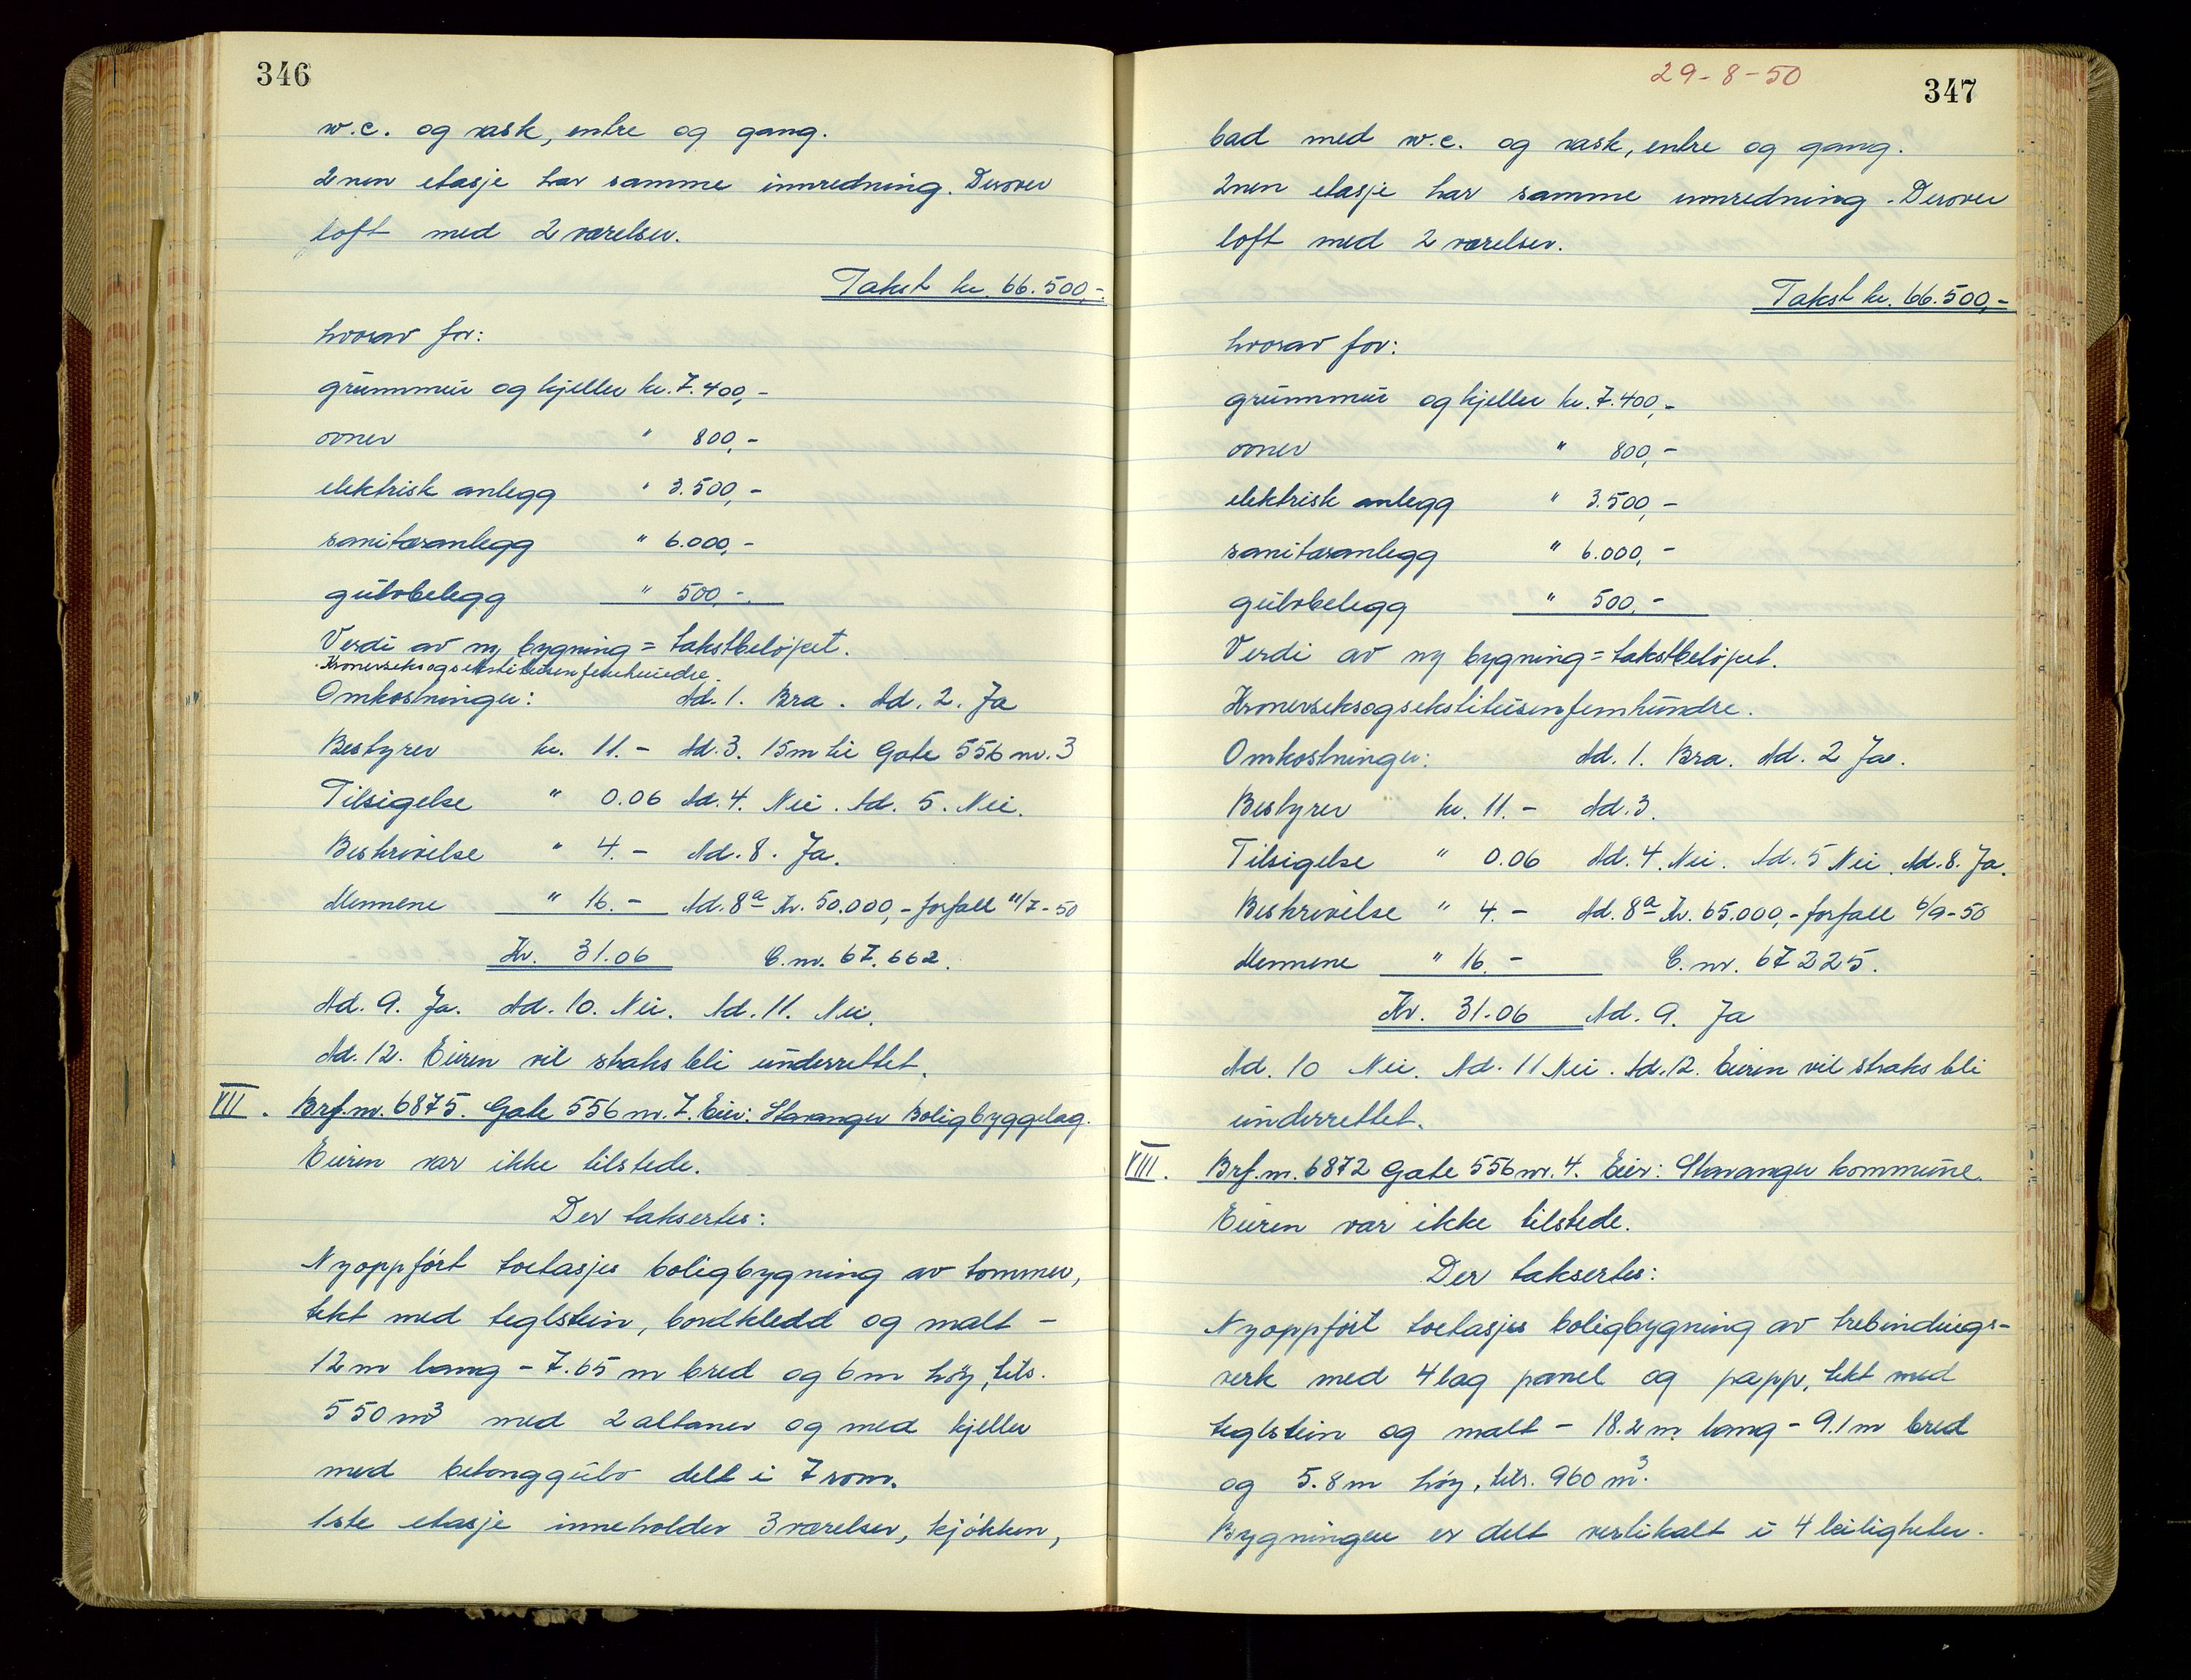 346
w.c. og vask, entre og gang.
2nen etasje har samme innredning. Derover
loft med 2 værelser.
Takst kr. 66.500,-.
hvorav for:
grunnmur og kjeller kr. 7.400,-
ovner " 800,-
elektrisk anlegg " 3.500,-
sanitæranlegg " 6.000,-
gulvbelegg " 500,-.
Verdi av ny bygning = takstbeløpet.
Kronerseksogsekstitusenfemhundre.
Omkostninger: Ad. 1. Bra. Ad. 2. Ja
Bestyrer kr. 11.- Ad. 3. 15m til Gate 556 nr. 3
Tilsigelse " 0.06 Ad. 4. Nei. Ad. 5. Nei.
Beskrivelse " 4.- Ad. 8. Ja.
Mennene " 16.- Ad. 8a Kr. 50.000,- forfall 11/7-50
Kr. 31.06 C.nr. 67.662.
Ad. 9. Ja. Ad. 10. Nei. Ad. 11. Nei.
Ad. 12. Eieren vil straks bli underrettet.
VII. Brf.nr. 6875. Gate 556 nr. 7. Eier: Stavanger Boligbyggelag.
Eieren var ikke tilstede.
Der taksertes:
Nyoppført toetasjes boligbygning av tømmer,
tekt med teglstein, bordkledd og malt -
12m lang - 7.65 m bred og 6m høy, tils.
550 m3 med 2 altaner og med kjeller
med betonggulv delt i 7 rom.
1ste etasje inneholder 3 værelser, kjøkken,
29-8-50
347
bad med w.c. og vask, entre og gang.
2nen etasje har samme innredning. Derover
loft med 2 værelser.
Takst kr. 66.500,-
hvorav for:
grunnmur og kjeller kr. 7.400,-
ovner " 800,-
elektrisk anlegg " 3.500,-
sanitæranlegg " 6.000,-
gulvbelegg " 500,-
Verdi av ny bygning = takstbeløpet.
Kronerseksogsekstitusenfemhundre.
Omkostninger: Ad. 1. Bra. Ad. 2 Ja.
Bestyrer kr. 11.- Ad. 3.
Tilsigelse " 0.06 Ad. 4. Nei. Ad. 5 Nei. Ad. 8. Ja.
Beskrivelse " 4.- Ad. 8a Kr. 65.000,- forfall 6/9-50
Mennene " 16.- C.nr. 67225.
Kr. 31.06 Ad. 9. Ja
Ad. 10 Nei. Ad. 11 Nei. Ad. 12. Eieren vil straks bli
underrettet.
VIII. Brf.nr. 6872 Gate 556 nr. 4. Eier: Stavanger kommune.
Eieren var ikke tilstede.
Der taksertes:
Nyoppført toetasjes boligbygning av trebindings-
verk med 4 lag panel og papp, tekt med
teglstein og malt - 18.2 m lang - 9.1 m bred
og 5.8 m høy, tils. 960 m3.
Bygningen er delt vertikalt i 4 leiligheter.